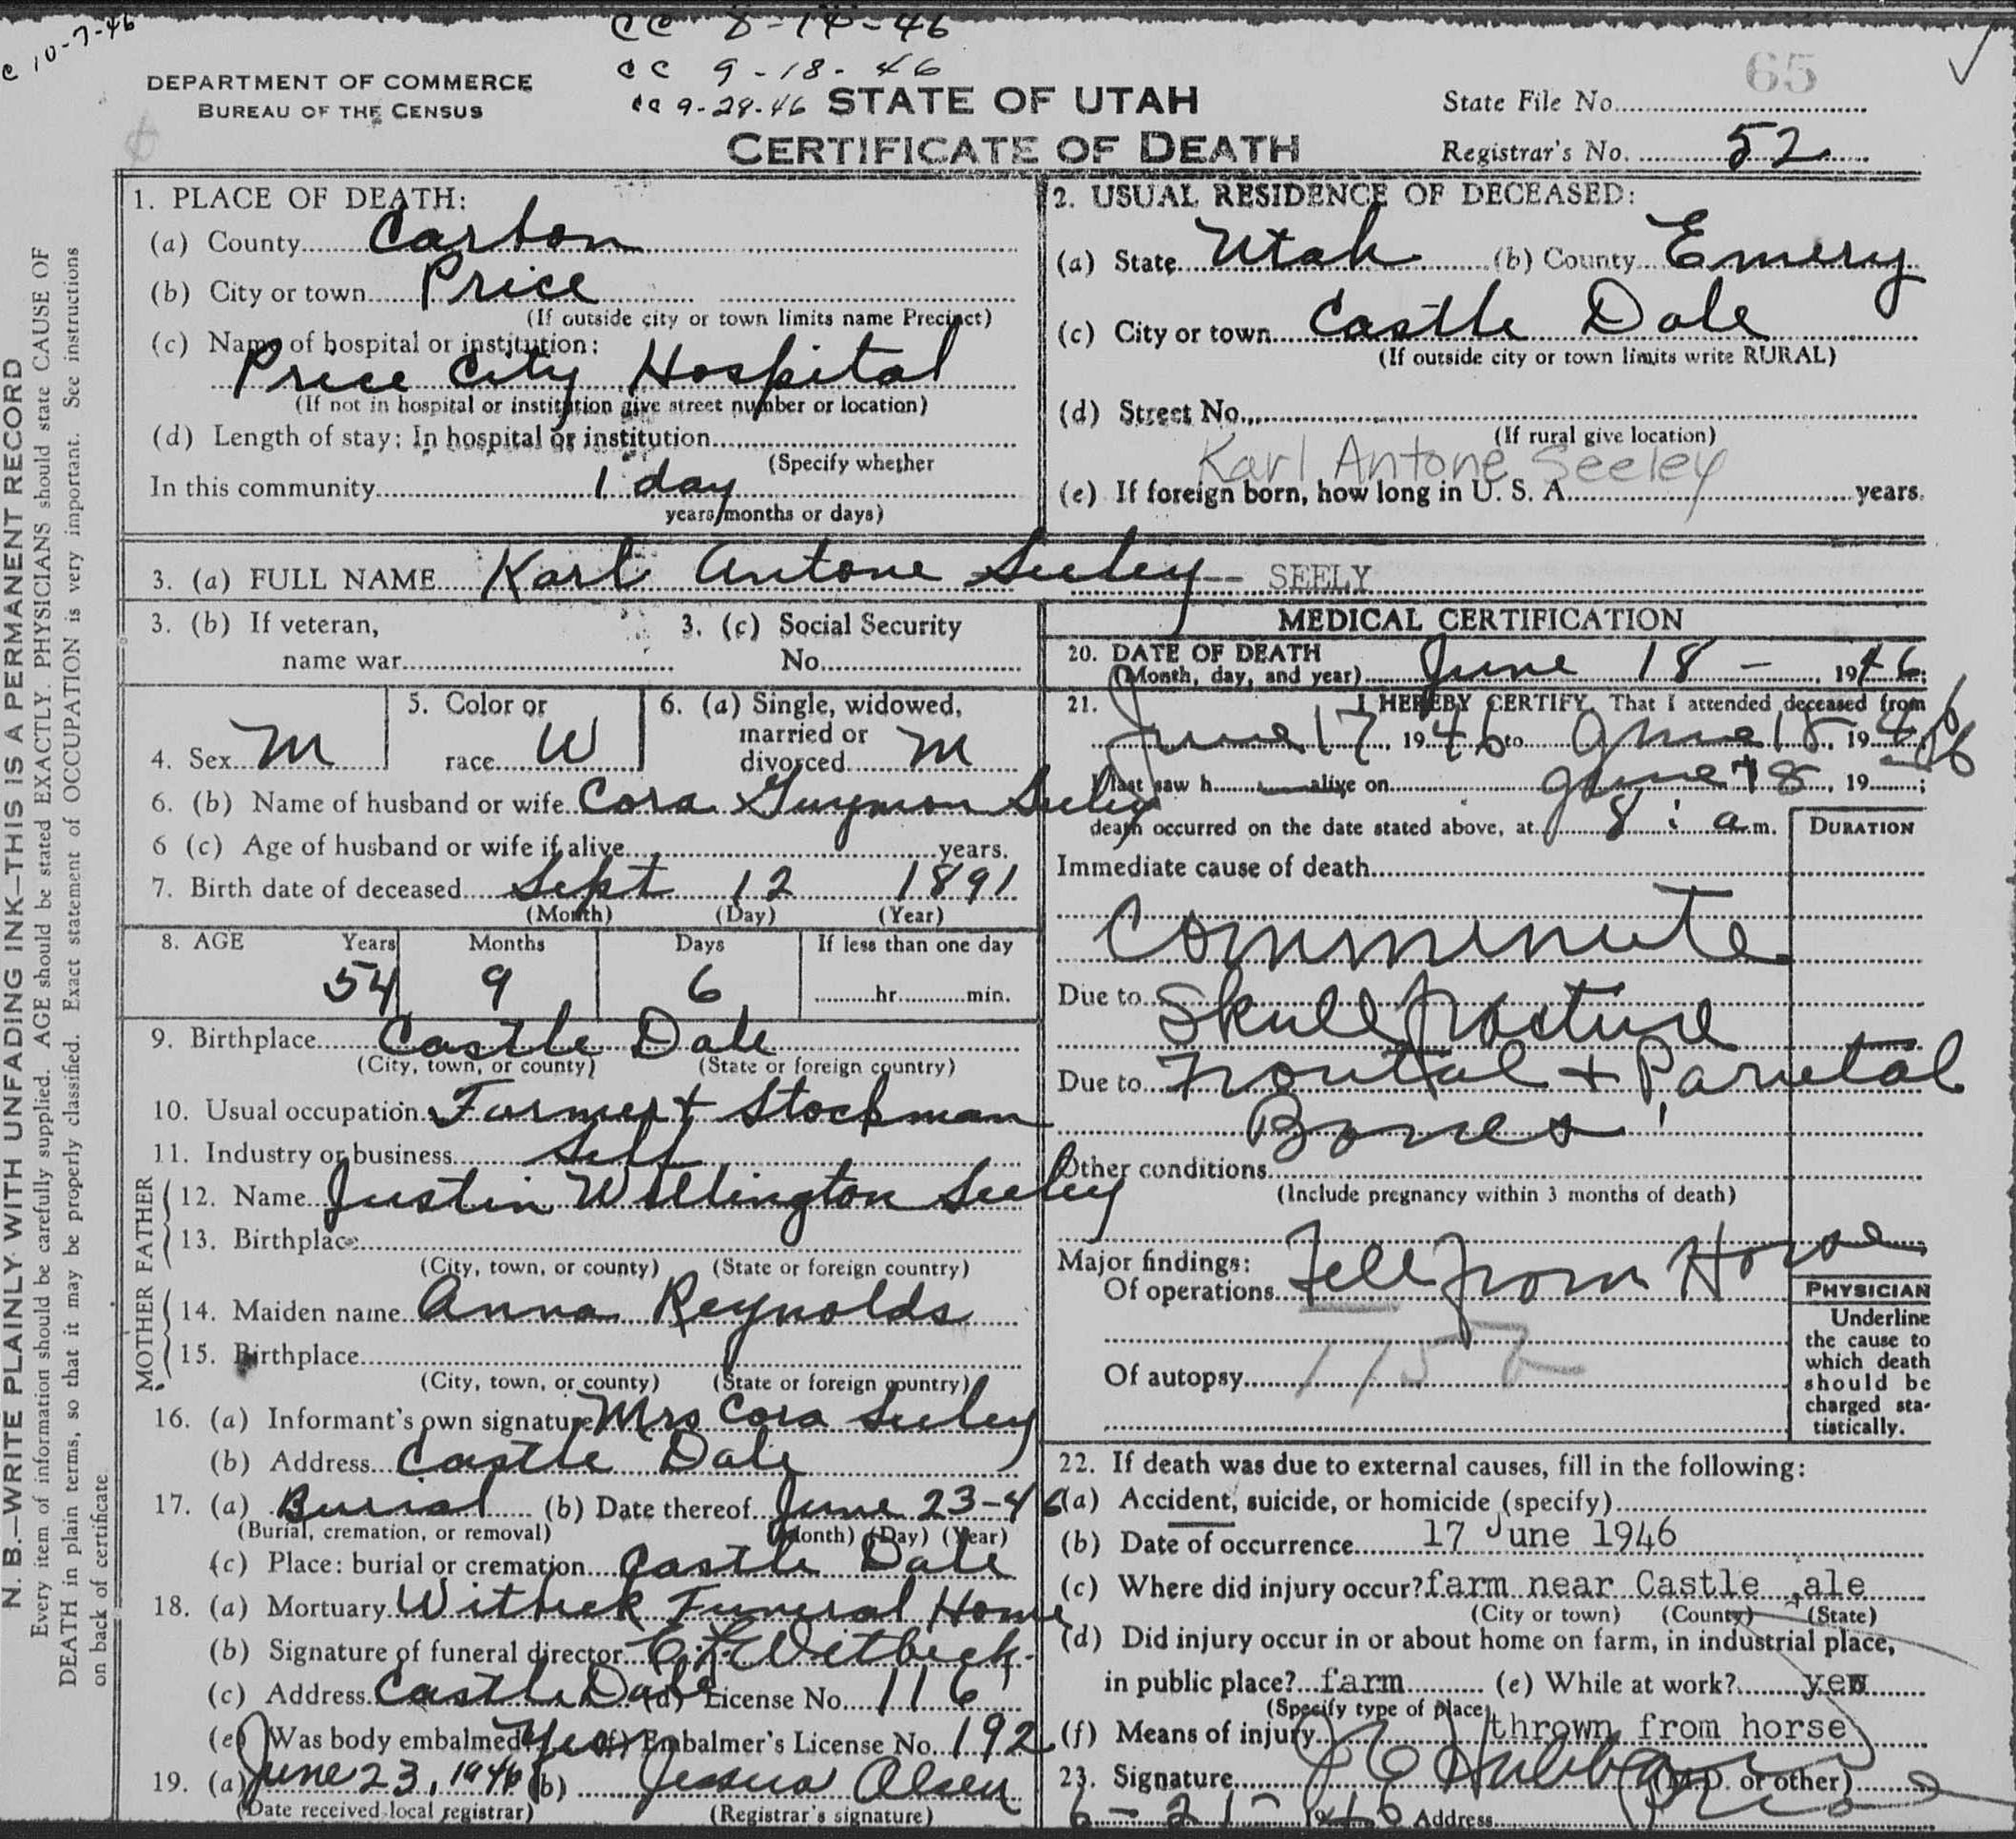 c 10-7-46
CC 8-14-46
CC 9-18-46
CC 9-28-46
65
DEPARTMENT OF COMMERCE
BUREAU OF THE CENSUS
STATE OF UTAH
CERTIFICATE OF DEATH
State File No.
Registrar's No. 52
N. B.—WRITE PLAINLY WITH UNFADING INK—THIS IS A PERMANENT RECORD
Every item of information should be carefully supplied. AGE should be stated EXACTLY. PHYSICIANS should state CAUSE OF
DEATH in plain terms, so that it may be properly classified. Exact statement of OCCUPATION is very important. See instructions
on back of certificate
1. PLACE OF DEATH:
(a) County Carbon
(b) City or town Price
(If outside city or town limits name Precinct)
(c) Name of hospital or institution:
Price City Hospital
(If not in hospital or institution give street number or location)
(d) Length of stay: In hospital or institution
(Specify whether
In this community 1 day
years, months or days)
2. USUAL RESIDENCE OF DECEASED:
(a) State Utah (b) County Emery
(c) City or town Castle Dale
(If outside city or town limits write RURAL)
(d) Street No.
(If rural give location)
Karl Antone Seeley
(e) If foreign born, how long in U. S. A. years.
3. (a) FULL NAME Karl Antone Seeley -- SEELY
3. (b) If veteran,
name war
3. (c) Social Security
No.
4. Sex M
5. Color or
race W
6. (a) Single, widowed,
married or
divorced M
6. (b) Name of husband or wife Cora Guymon Seeley
6 (c) Age of husband or wife if alive years.
7. Birth date of deceased Sept 12 1891
(Month) (Day) (Year)
8. AGE Years Months Days If less than one day
54 9 6 hr. min.
9. Birthplace Castle Dale
(City, town, or county) (State or foreign country)
10. Usual occupation Farmer + Stockman
11. Industry or business Self
FATHER
12. Name Justin Willington Seeley
13. Birthplace
(City, town, or county) (State or foreign country)
MOTHER
14. Maiden name Anna Reynolds
15. Birthplace
(City, town, or county) (State or foreign country)
16. (a) Informant's own signature Mrs Cora Seeley
(b) Address Castle Dale
17. (a) Burial (b) Date thereof June 23-46
(Burial, cremation, or removal) (Month) (Day) (Year)
(c) Place: burial or cremation Castle Dale
18. (a) Mortuary Witbeck Funeral Home
(b) Signature of funeral director Witbeck
(c) Address Castle Dale (d) License No. 116
(e) Was body embalmed? Yes (f) Embalmer's License No. 192
19. (a) June 23, 1946 (b) Olsen
(Date received local registrar) (Registrar's signature)
MEDICAL CERTIFICATION
20. DATE OF DEATH
(Month, day, and year) June 18 - 1946;
21. I HEREBY CERTIFY, That I attended deceased from
June 17, 1946 to June 18, 1946
I last saw h alive on June 18, 1946;
death occurred on the date stated above, at 8 : a.m.
DURATION
Immediate cause of death
Comminute
Due to Skull fracture
Due to Frontal + Parietal
Bones
Other conditions
(Include pregnancy within 3 months of death)
Major findings:
Of operations Fell from Horse
Of autopsy
PHYSICIAN
Underline
the cause to
which death
should be
charged sta-
tistically.
22. If death was due to external causes, fill in the following:
(a) Accident, suicide, or homicide (specify)
(b) Date of occurrence 17 June 1946
(c) Where did injury occur? farm near Castle ale
(City or town) (County) (State)
(d) Did injury occur in or about home on farm, in industrial place,
in public place? farm (e) While at work? yes
(Specify type of place)
(f) Means of injury thrown from horse
23. Signature (M.D. or other)
6-21-1946 Address